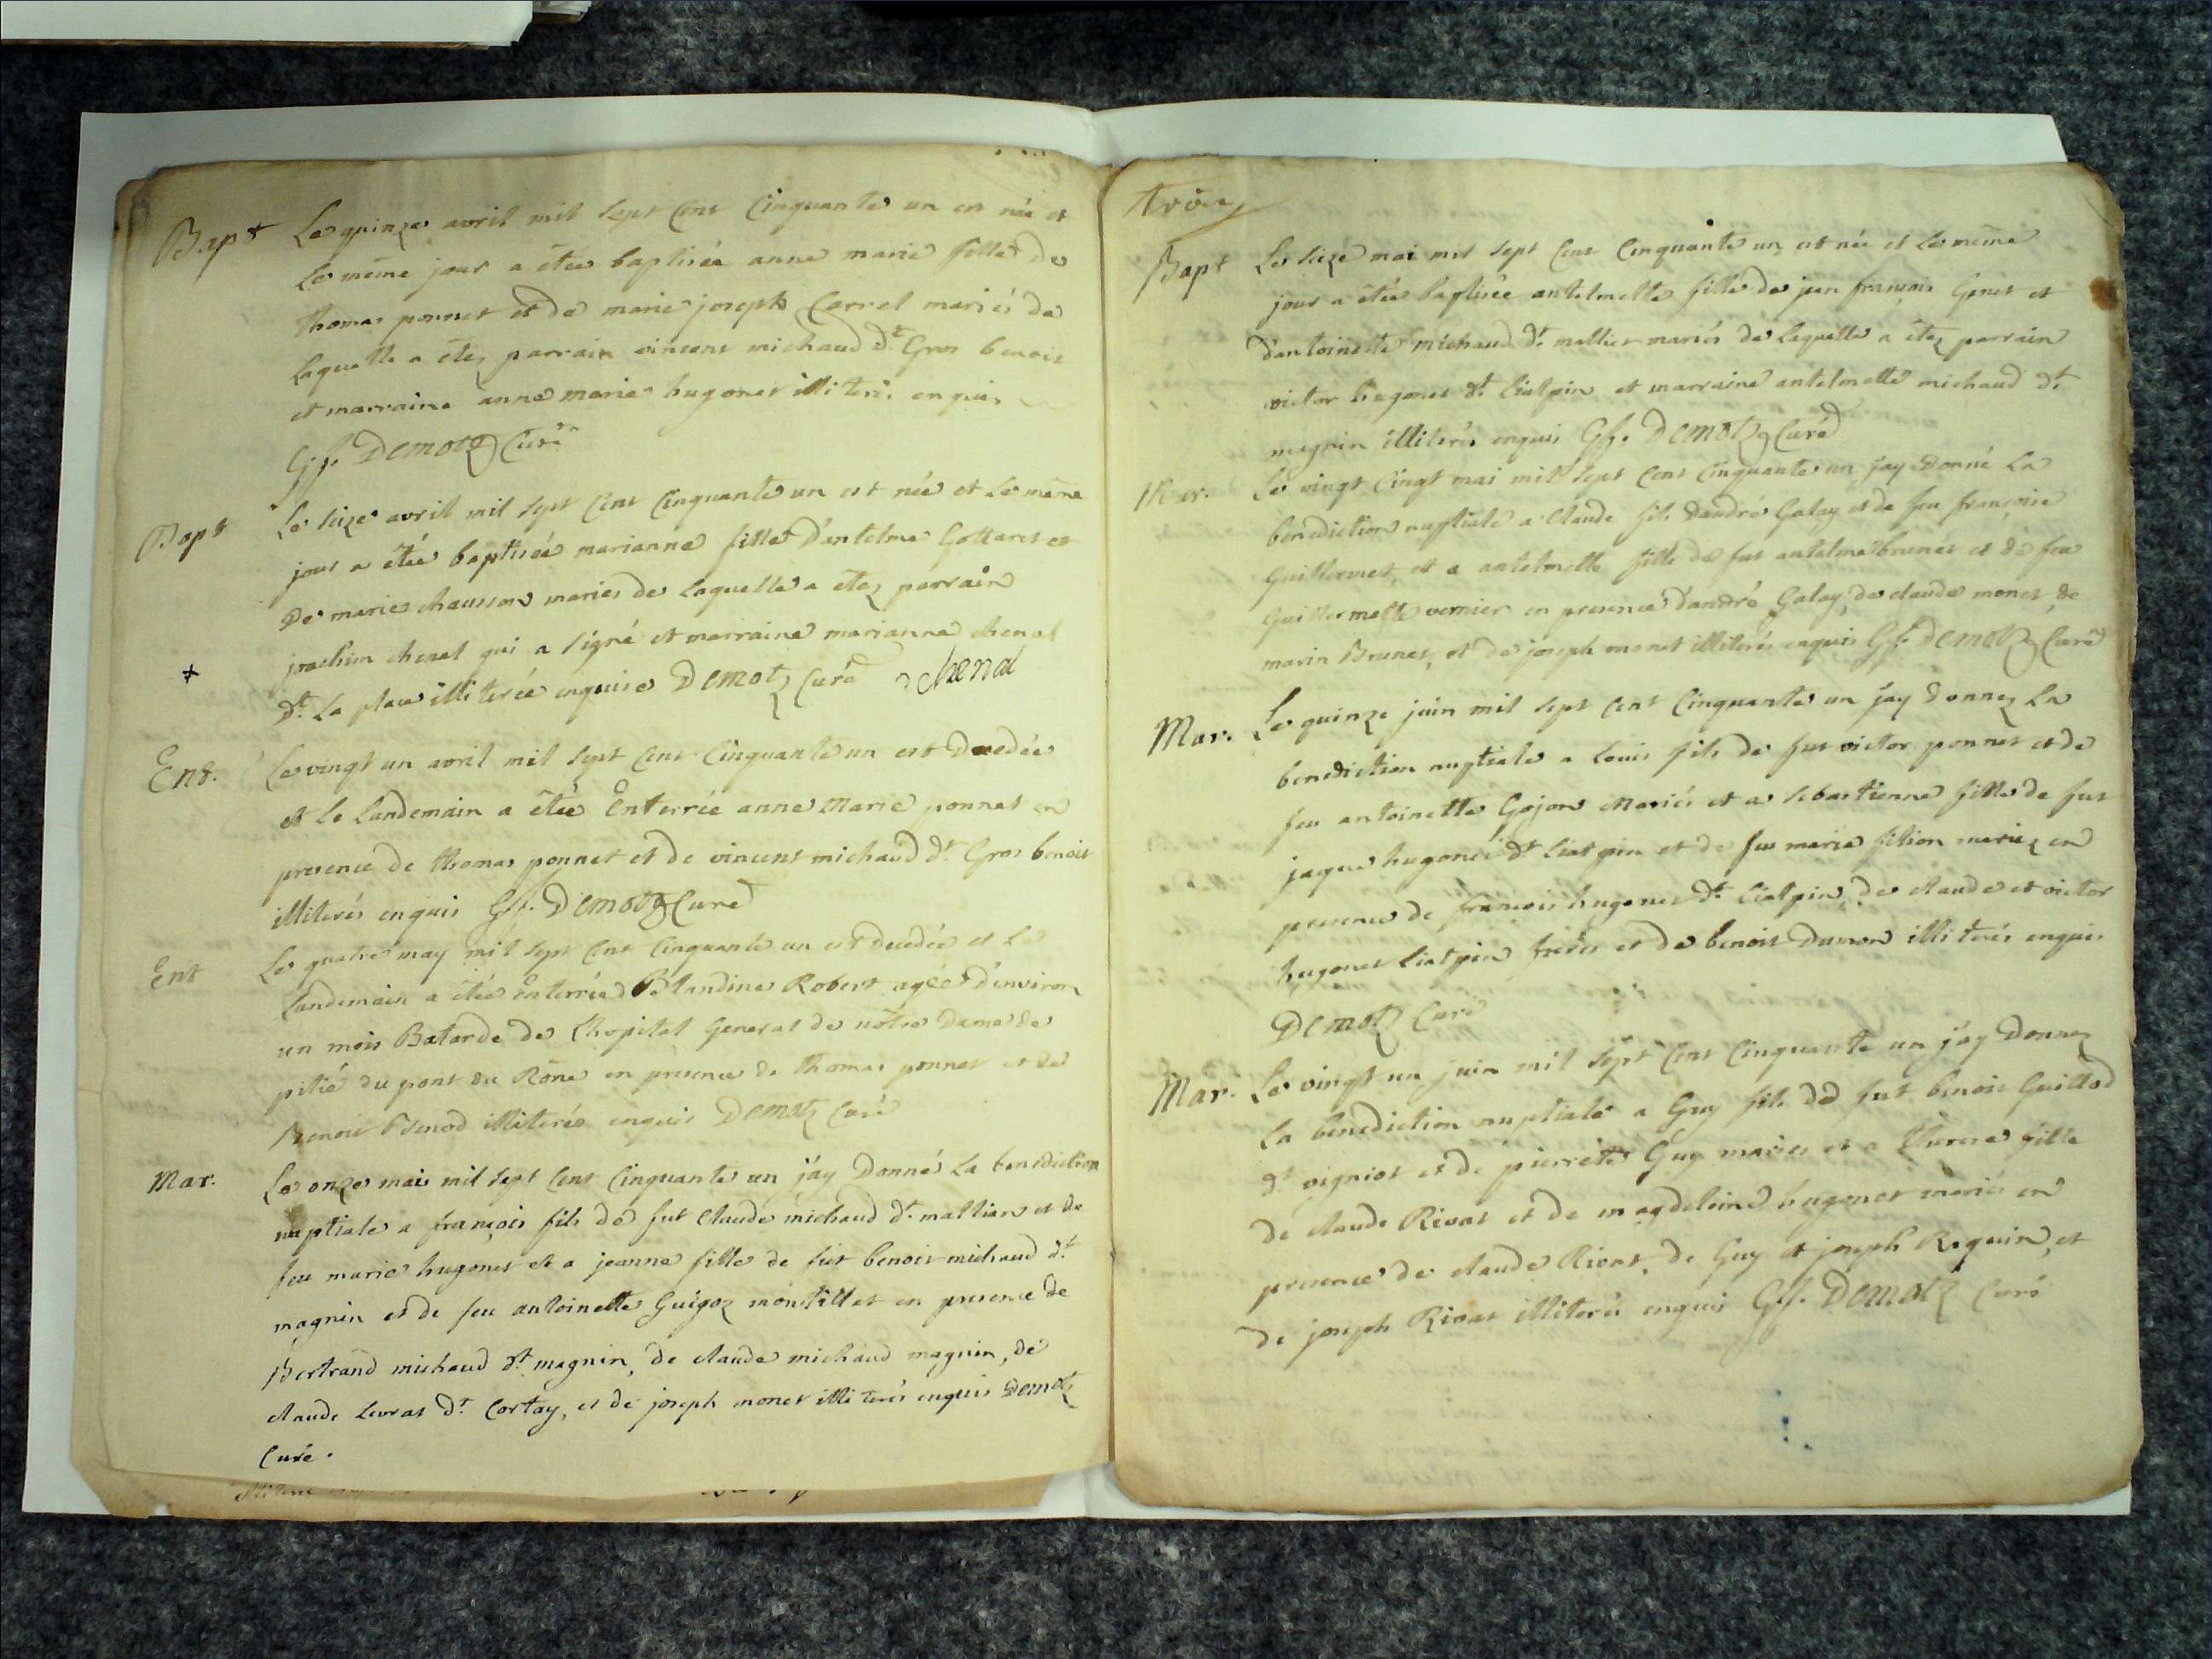 Bapt Le quinze avril mil sept cent cinquante un est née et
le même jour a étée baptisée anne marie fille de
thomas ponnet et de marie joseph Carrel mariés de
laquelle a étez parrain vincent michaud dt. Gros benoit
et marraine anne marie hugonet illiterés enquis
Gf. Demotz Curé
Bapt Le seize avril mil sept cent cinquante un est née et le même
jour a étée baptisée marianne fille d'antelme Gottaret et
de marie chausson mariés de laquelle a etez parrain
joachim chenal qui a signé et marraine marianne chenal
dt. la place illiterée enquise Demotz Curé chenal
Ent. Le vingt un avril mil sept cent cinquante un est decedée
et le landemain a étée Enterrée anne Marie ponnet en
presence de thomas ponnet et de vincent michaud dt. Gros benoit
illiterés enquis Gf. Demotz Curé
Ent Le quatre may mil sept cent cinquante un est decedée et le
landemain a étée enterrée Blandine Robert agée d'environ
un mois Batarde de L'hopital General de nôtre dame de
pitié du pont du Rône en présence de thomas ponnet et de
Benoit illiterés enquis Demotz Curé
Mar. Le onze mai mil sept cent cinquante un j'ay Donné la benediction
nuptiale a françois fils de fut claude michaud dt. mallian et de
feu marie hugonet et a jeanne fille de fut benoit michaud dt.
magnin et de feu antoinette Guigoz montillet en presence de
Bertrand michaud dt. magnin, de claude michaud magnin, de
claude levrat dt. Cortay, et de joseph monet illiterés enquis Demotz
Curé.
Bapt Le seize mai mil sept cent cinquante un est née et le même
jour a étée baptisée antelmette fille de jean françois Genet et
d'antoinette michaud dt. mallier mariés de laquelle a étez parrain
victor hugonet dt. liatpin et marraine antelmette michaud dt.
magnin illiterés enquis Gf. Demotz Curé
Mar. Le vingt cingt mai mil sept cent cinquante un jay donné la
benediction nuptiale a claude fils d'andré Galay et de feu françoise
Guillermet, et a antelmette fille de fut antelme brunet et de feu
Guillermette vernier en presence d'andré Galay, de claude monet, de
marin Brunet, et de joseph monet illiterés enquis Gf. Demotz Curé
Mar. Le quinze juin mil sept cent cinquante un jay donnez la
benediction nuptiale a louis fils de fut victor ponnet et de
feu antoinette Gojon Mariés et a sebastienne fille de fut
jaque hugonet dt. liatpin et de feu marie fition mariez en
presence de françois hugonet dt. liatpin, de claude et victor
hugonet liatpin freres et de benoit dumon illiterés enquis
Demotz Curé
Mar. Le vingt un juin mil sept cent cinquante un j'ay Donnez
la benediction nuptiale a Guy fils de fut benoit Guillod
dt. vigniot et de pierrete Guy mariés et a fille
de claude Rivat et de magdeleine hugonet mariés en
presence de claude Rivat, de Guy et joseph Reguin, et
de joseph Rivat illiterés enquis Gf. Demotz Curé